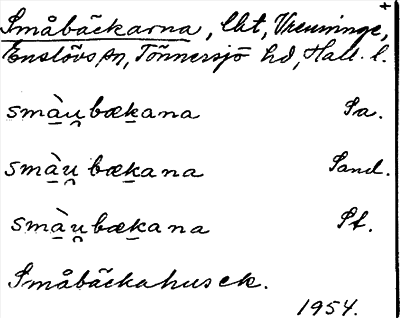 Småbäckarna, lht, Vreninge, +
Enslövs sn, Tönnersjö hd, Hall. l.
smàu̯bækana Sa.
smàu̯bækana Sand.
smàu̯bækana St.
Småbäckahusek.
1954.